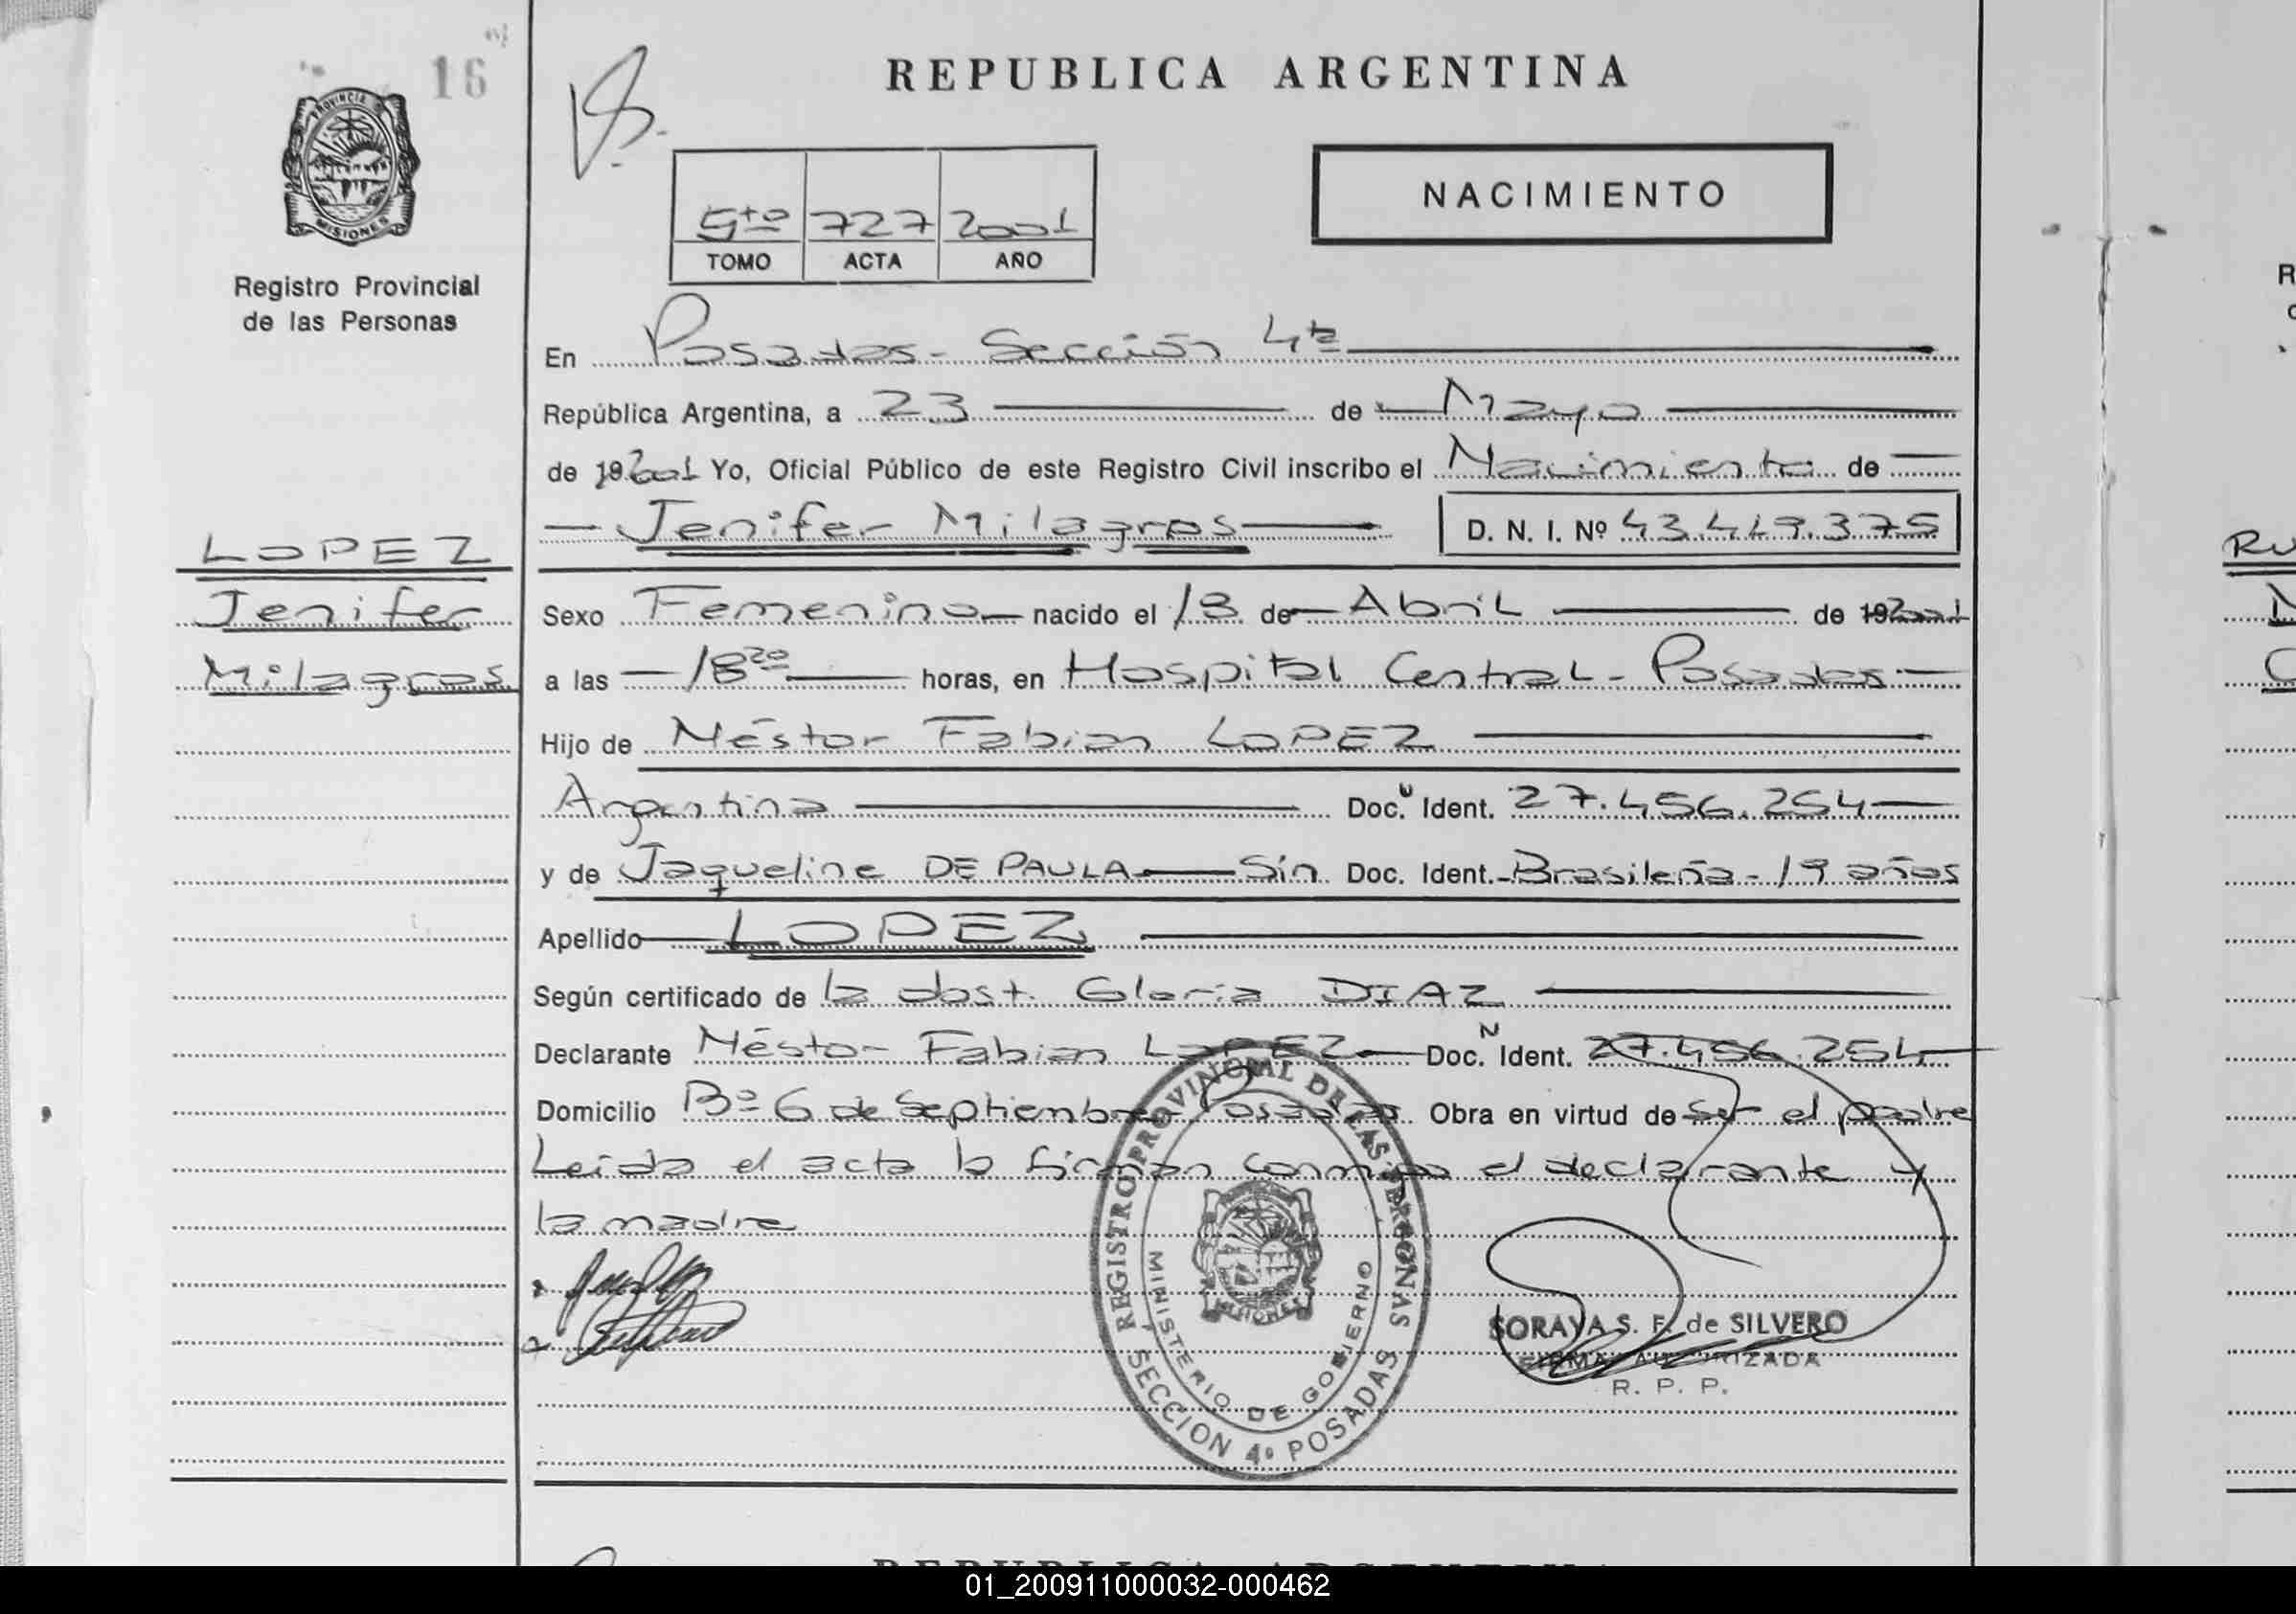 16
PROVINCIA DE
MISIONES
Registro Provincial
de las Personas
LOPEZ
Jenifer
Milagros
REPUBLICA ARGENTINA
NACIMIENTO
5to 727 2001
TOMO ACTA AÑO
En Posadas - Sección 4ta
República Argentina, a 23 de Mayo
de 192001 Yo, Oficial Público de este Registro Civil inscribo el Nacimiento de
Jenifer Milagros D. N. I. Nº 43.449.375
Sexo Femenino nacido el 18 de Abril de 192001
a las 18 20 horas, en Hospital Central - Posadas
Hijo de Néstor Fabian LOPEZ
Argentina Doc. Ident. 27.456.254
y de Jaqueline DE PAULA Sin Doc. Ident. Brasileña - 19 años
Apellido LOPEZ
Según certificado de la obst. Gloria DIAZ
Declarante Néstor Fabian LOPEZ Doc. N Ident. 27.456.254
Domicilio Bº 6 de Septiembre - Posadas Obra en virtud de ser el padre
Leída el acta la firman conmigo el declarante y
la madre
REGISTRO PROVINCIAL DE LAS PERSONAS
MINISTERIO DE GOBIERNO
SECCION 4º POSADAS
SORAYA S. F. de SILVERO
FIRMA AUTORIZADA
R. P. P.
REPUBLICA ARGENTINA
01_200911000032-000462